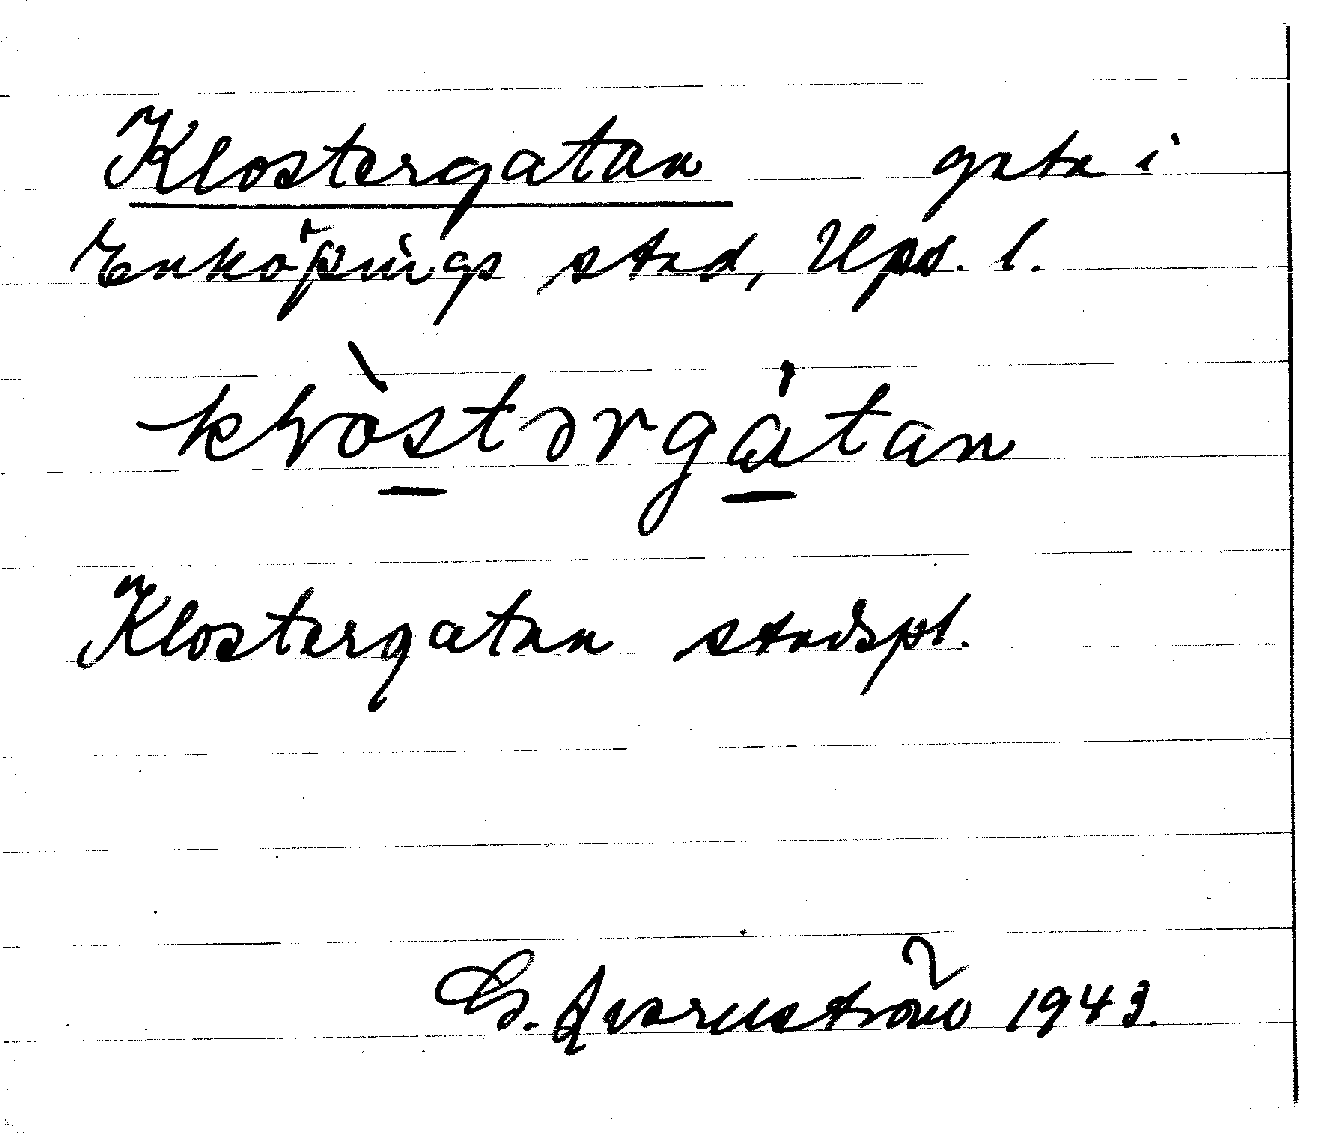 Klostergatan gata i
Enköpings stad, Upps. l.
klòstərgátan
Klostergatan stadspl.
G. Qvarnström 1943.